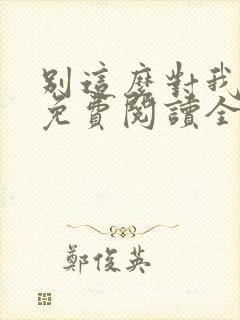 別這麼對我
免費閱讀全
鄭俊英